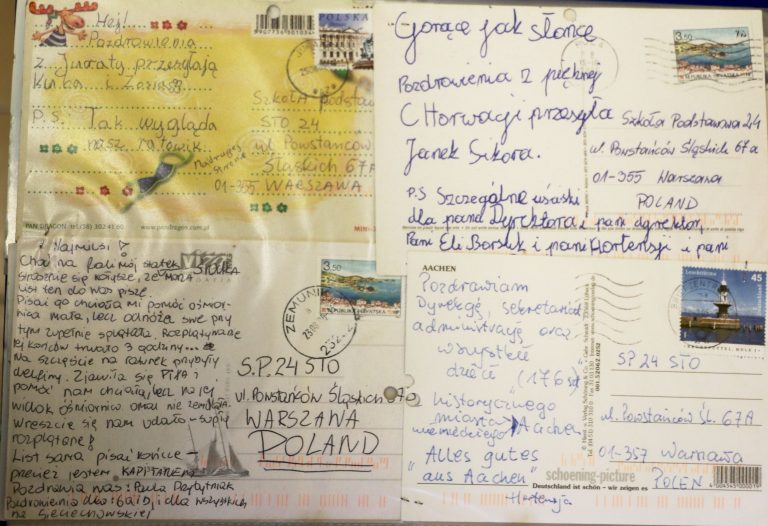 Hej!
Pozdrowienia
z Juraty przesyłają
Kuba i
P.S. Tak wygląda
nasz ratownik
Na drugiej stronie
5907736901034
POLSKA
Szkoła podstaw
STO 24
ul Powstańców
Śląskich 67A
01-355 WARSZAWA
PAN DRAGON tel (58) 302 41 60
www.pandragon.com.pl
MINI-
Gorące jak słońce
Pozdrowienia z pięknej
CHorwacji przesyła
Janek Sikora.
P.S Szczególne uściski
dla pana Dyrektora i pani dyrektor,
Pani Eli Borsuk i pani Hortensji i pani
3.50
REPUBLIKA HRVATSKA
Szkoła Podstawowa 24
ul. Powstańców Śląskich 67a
01-355 Warszawa
POLAND
Z Najmusi!
Choć na fali mój statek
strasznie się kołysze, ze MORZA
list ten do Was piszę.
Pisać go chciała mi pomóc ośmior-
nica mała, lecz odnóża swe przy
tym zupełnie splątała. Rozplątywanie
jej końców trwało 3 godziny...
Na szczęście na ratunek przybyły
delfiny. Zjawiła się PIŁA i
pomóc nam chciała, lecz na jej
widok ośmiornica omal nie zemdlała.
Wreszcie się nam udało - supły
rozplątane!
List sama pisać kończę -
przecież jestem KAPITANEM
Pozdrawia was: Paula
Pozdrowienia dla: 6a i D, i dla wszystkich
na
3.50
REPUBLIKA HRVATSKA
ZEMUNIK
S.P. 24 STO
ul. Powstańców Śląskich 67a
WARSZAWA
POLAND
AACHEN
Pozdrawiam
Dyrekcję, sekretariat
administrację oraz
wszystkie
dzieci (176
z historycznego
miasta Aachen
niemieckiego
Alles gutes
"aus Aachen"
Hortensja
45
SP 24 STO
ul. Powstańców Śl. 67A
01-357 Warszawa
POLEN
schoening-picture
Deutschland ist schön – wir zeigen es